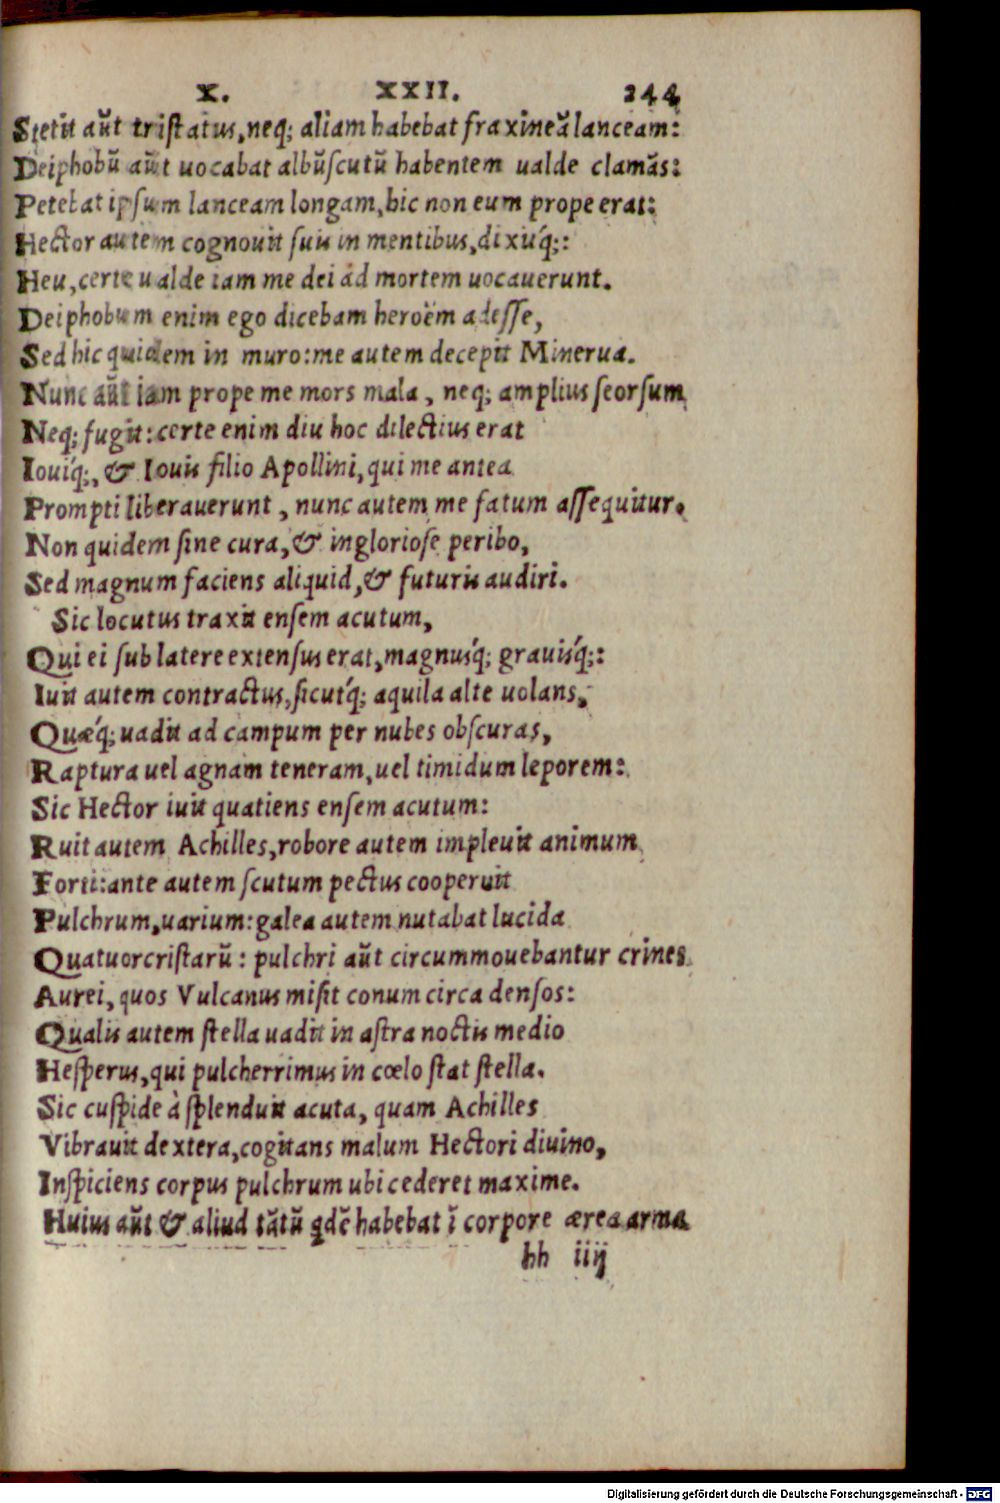 X. XXII. 244
Stetit aũt tristatus, neq; aliam habebat fraxineã lanceam:
Deiphobũ aũt uocabat albũ scutũ habentem ualde clamãs:
Petebat ipsum lanceam longam, hic non eum prope erat:
Hector autem cognouit suis in mentibus, dixitq́;:
Heu, certe ualde iam me dei ad mortem uocauerunt.
Deiphobum enim ego dicebam heroëm adesse,
Sed hic quidem in muro: me autem decepit Minerua.
Nunc aũt iam prope me mors mala, neq; amplius seorsum,
Neq; fugit: certe enim diu hoc dilectius erat
Iouiq́;, & Iouis filio Apollini, qui me antea
Prompti liberauerunt, nunc autem me fatum assequitur.
Non quidem sine cura, & ingloriose peribo,
Sed magnum faciens aliquid, & futuris audiri.
Sic locutus traxit ensem acutum,
Qui ei sub latere extensus erat, magnusq́; grauisq́;:
Iuit autem contractus, sicutq́; aquila alte uolans,
Quæq́; uadit ad campum per nubes obscuras,
Raptura uel agnam teneram, uel timidum leporem:
Sic Hector iuit quatiens ensem acutum:
Ruit autem Achilles, robore autem impleuit animum
Forti: ante autem scutum pectus cooperuit
Pulchrum, uarium: galea autem nutabat lucida
Quatuor cristarũ: pulchri aũt circummouebantur crines
Aurei, quos Vulcanus misit conum circa densos:
Qualis autem stella uadit in astra noctis medio
Hesperus, qui pulcherrimus in cœlo stat stella.
Sic cuspide à splenduit acuta, quam Achilles
Vibrauit dextera, cogitans malum Hectori diuino,
Inspiciens corpus pulchrum ubi cederet maxime.
Huius aũt & aliud tãtũ qdẽ habebat ĩ corpore ærea arma
hh iiij
Digitalisierung gefördert durch die Deutsche Forschungsgemeinschaft - DFG